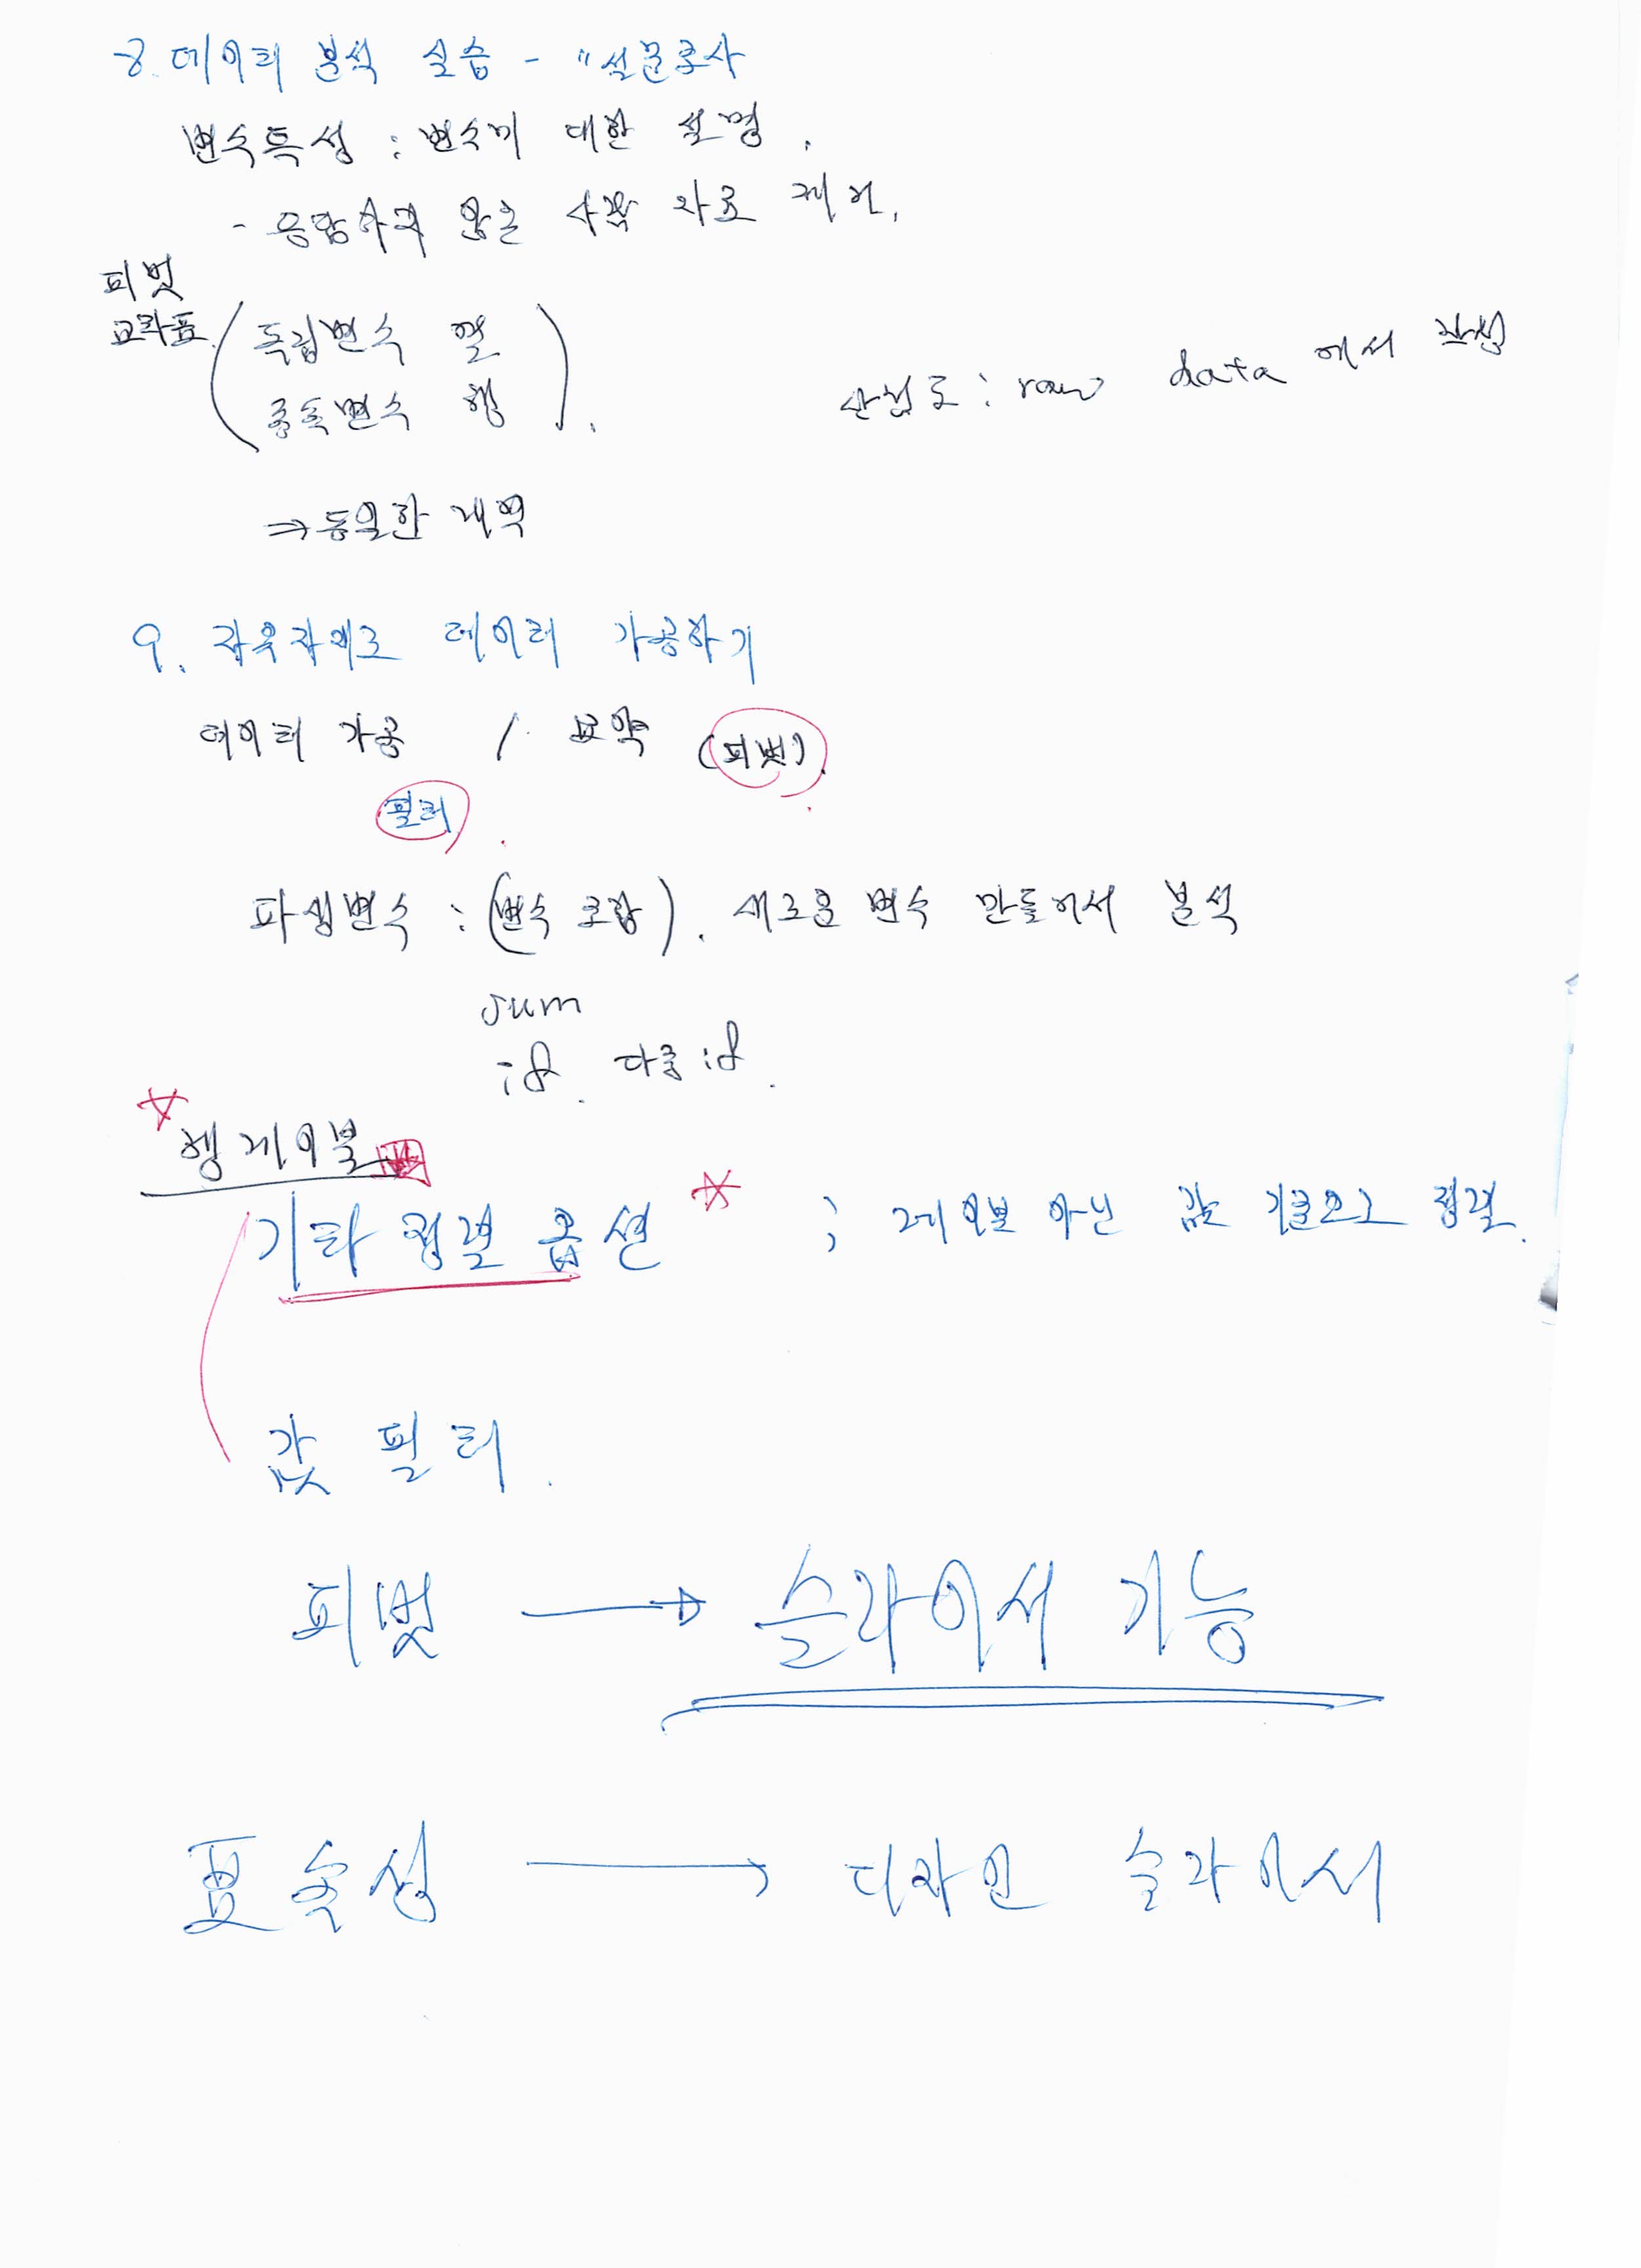 8. 데이터 분석 실습 - "설문조사
변수특성 : 변수에 대한 설명.
- 응답하지 않은 사람 자료 제거.
피벗
교차표 (독립변수 열
종속변수 행).
산점도 : raw data 에서 작성
⇒ 동일한 개
9. 자유자재로 데이터 가공하기
데이터 가공 / 요약 (피벗).
필터.
파생변수 : (변수 조합). 새로운 변수 만들어서 분석
sum
if. 다중 if.
☆
행 레이블
기타 정렬 옵션 ☆ ; 레이블 아닌 값 기준으로 정렬.
값 필터.
피벗 → 슬라이서 기능
표 속성 → 디자인 슬라이서